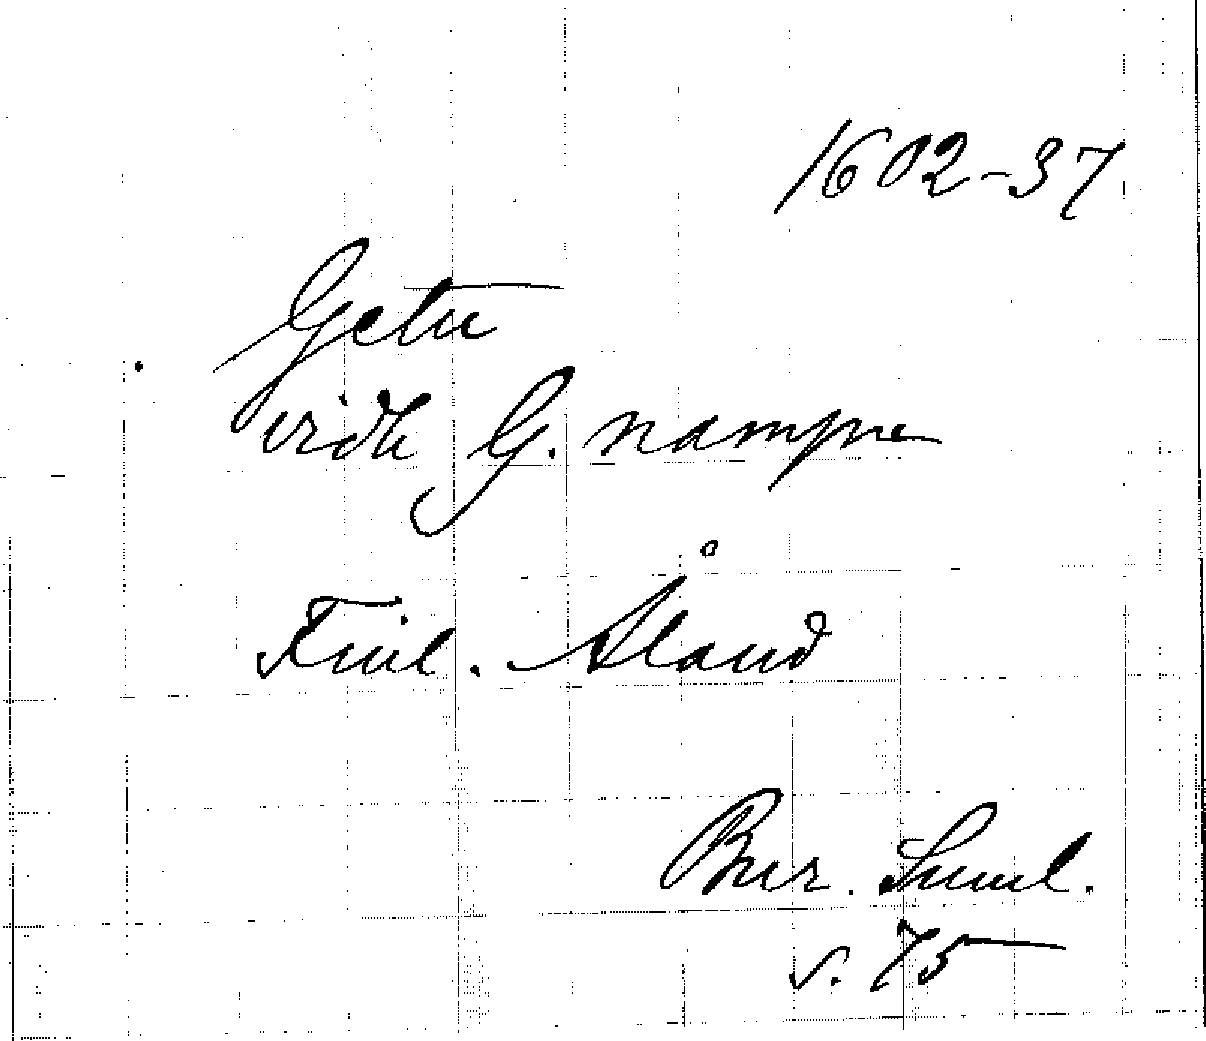 1602-37
Getu
vidh G. nampn
Finl. Åland
Bur. Suml.
s. 75